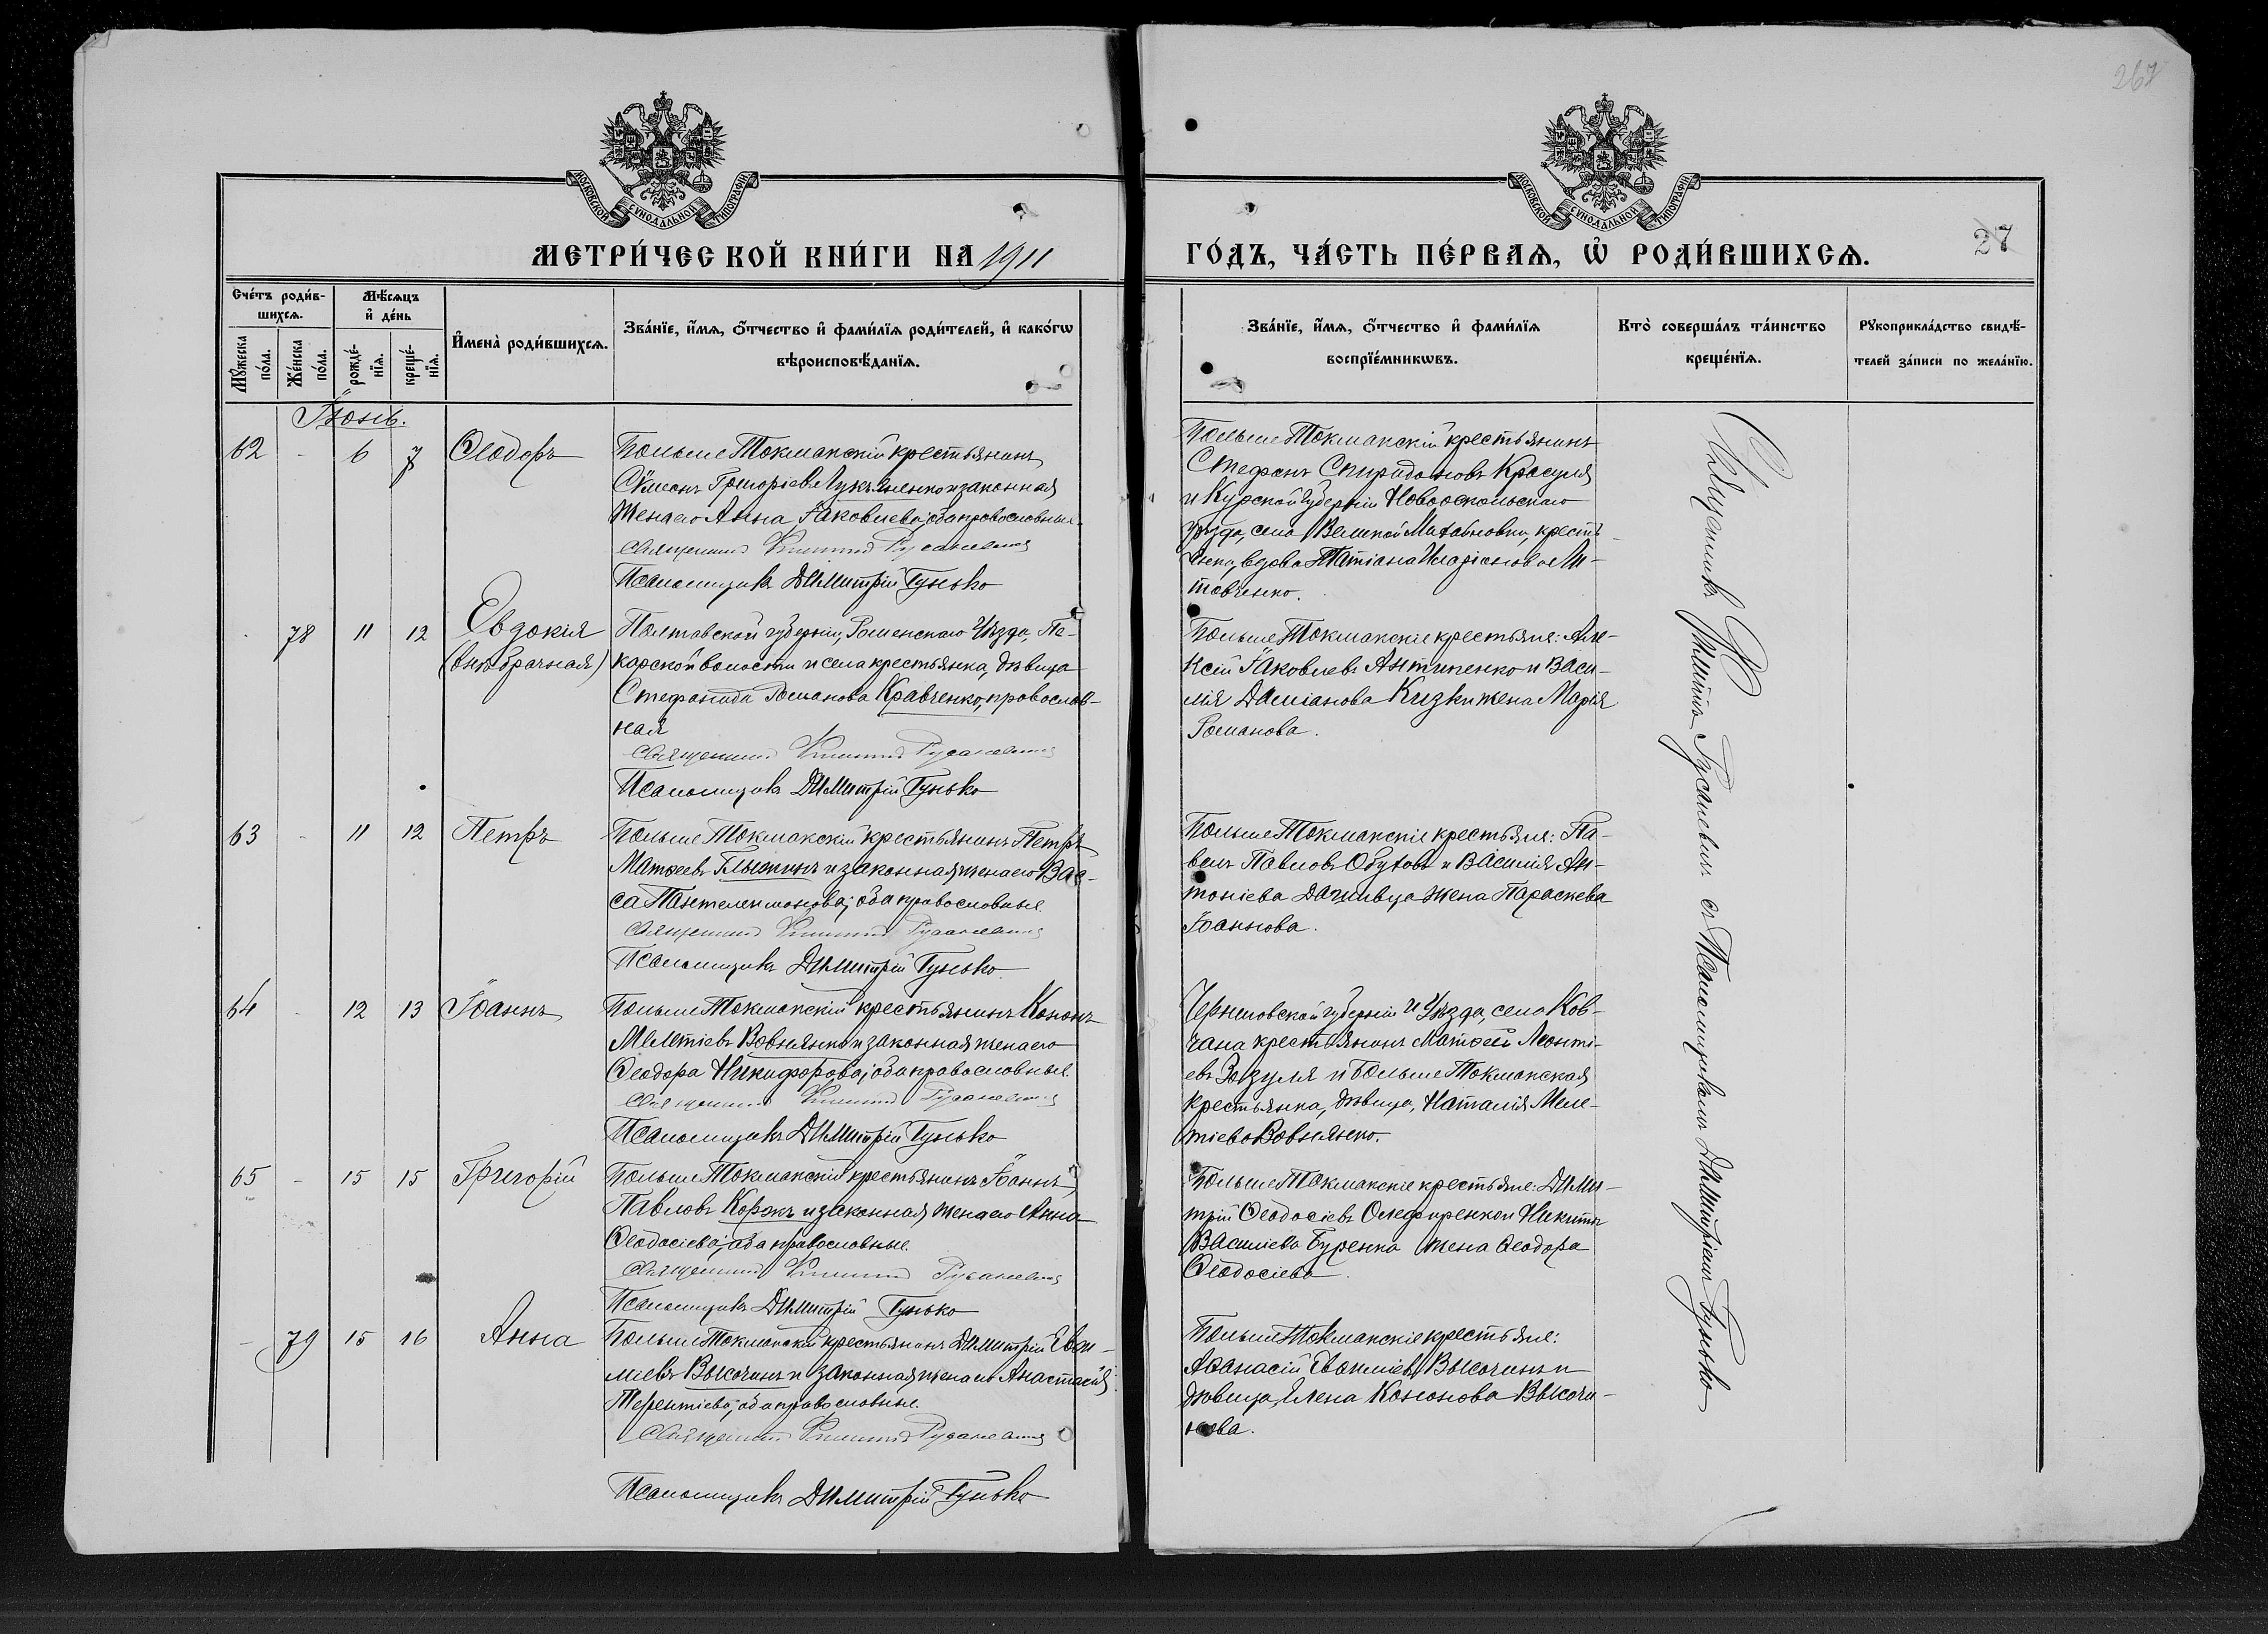 267
МОСКОВСКОЙ СѴНОДАЛЬНОЙ ТИПОГРАФІИ
МОСКОВСКОЙ СѴНОДАЛЬНОЙ ТИПОГРАФІИ
МЕТРИ́ЧЕСКОЙ КНИ́ГИ НА 1911
ГО́ДЪ, ЧА́СТЬ ПЕ́РВАЯ, Ѡ҆ РОДИ́ВШИХСѦ.
27
Сче́тъ роди́в-
шихсѧ.
Мꙋ́жеска по́ла.
Же́нска по́ла.
Мѣ́сѧцъ
и҆ де́нь
рожде́-
нїѧ.
креще́-
нїѧ.
И҆мена̀ роди́вшихсѧ.
Зва́нїе, и҆́мѧ, ѻ҆́тчество и҆ фами́лїѧ роди́телей, и҆ како́гѡ
вѣроисповѣ́данїѧ.
Зва́нїе, и҆́мѧ, ѻ҆́тчество и҆ фами́лїѧ
воспрїе́мникѡвъ.
Кто̀ соверша́лъ та́инство
креще́нїѧ.
Рꙋкоприкла́дство свидѣ́-
телей за́писи по жела́нїю.
Іюнь.
62 - 6 7 Ѳеодоръ
Больше Токмакскій крестьянинъ
Сѵмеонъ Григоріевъ Лукьяненко и законная
жена его Анна Іаковлева; оба православные.
Священникъ Русаневичъ
Псаломщикъ Димитрій Гунько
Больше Токмакскій крестьянинъ
Стефанъ Спиридоновъ Красуля
и Курской губерніи Новооскольскаго
уѣзда, села Великой Михайловки, кресть-
янка, вдова Татіана Иларіонова Ли-
товченко.
- 78 11 12 Евдокія
(внѣбрачная)
Полтавской губерніи, Роменскаго Уѣзда, Пе-
карской волости и села крестьянка, дѣвица
Стефанида Романова Кравченко, православ-
ная
Священникъ Русаневичъ
Псаломщикъ Димитрій Гунько
Больше Токмакскіе крестьяне: Але-
ксій Іаковлевъ Антипенко и Васи-
лія Даміанова Кизки жена Марія
Романова.
63 - 11 12 Петръ
Больше Токмакскій крестьянинъ Петръ
Матѳеевъ и законная жена его Вас-
са Пантелеимонова; оба православные.
Священникъ Русаневичъ
Псаломщикъ Димитрій Гунько
Больше Токмакскіе крестьяне: Па-
велъ Павловъ Обуховъ и Василія Ан-
тоніева жена Параскева
Іоаннова.
64 - 12 13 Іоаннъ
Больше Токмакскій крестьянинъ Кононъ
Мелетіевъ Вовнянко и законная жена его
Ѳеодора Никифорова; оба православные.
Священникъ Русаневичъ
Псаломщикъ Димитрій Гунько
Черниговской губерніи и Уѣзда, села Ков-
чана крестьянинъ Матѳей Леонті-
евъ Зозуля и Больше Токмакская
крестьянка, дѣвица, Наталія Меле-
тіева Вовнянко.
65 - 15 15 Григорій
Больше Токмакскій крестьянинъ Іоаннъ
Павловъ Коржъ и законная жена его Анна
Ѳеодосіева; оба православные.
Священникъ Русаневичъ
Псаломщикъ Димитрій Гунько
Больше Токмакскіе крестьяне: Дими-
трій Ѳеодосіевъ Олефиренко и Никиты
Василіева Буренка жена Ѳеодора
Ѳеодосіева.
- 79 15 16 Анна
Больше Токмакскій крестьянинъ Димитрій Евѳи-
міевъ Высочинъ и законная жена его Анастасія
Терентіева; оба православные.
Священникъ Русаневичъ
Псаломщикъ Димитрій Гунько
Больше Токмакскіе крестьяне:
Аѳанасій Евѳиміевъ Высочинъ и
дѣвица, Елена Кононова Высочи-
нова.
Священникъ Русаневичъ съ Псаломщикомъ Димитріемъ Гунько